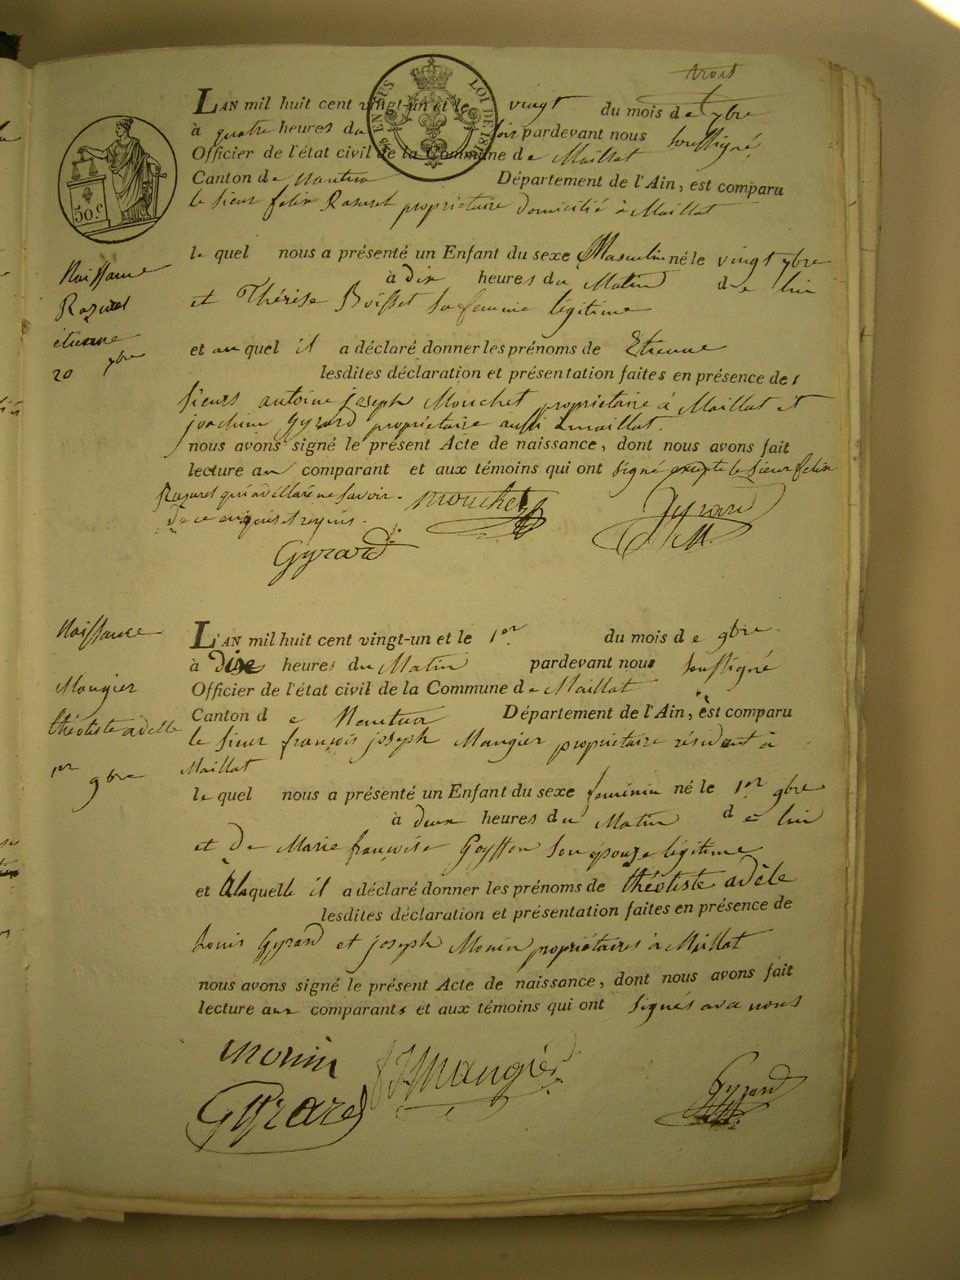 trois
LAN mil huit cent vingt-un et le vingt du mois de 7bre
à quatre heures du soir pardevant nous soussigné
Officier de l'état civil de la Commune de Maillat
Canton de Nantua Département de l'Ain, est comparu
le sieur felix Razurel propriétaire domicilié à Maillat
50 c.
le quel nous a présenté un Enfant du sexe Masculin né le vingt 7bre
à dix heures du Matin de lui
et Thérèse Boisset sa femme légitime
Naissance
Razurel
étienne
20 7bre
et au quel il a déclaré donner les prénoms de Etienne
lesdites déclaration et présentation faites en présence des
sieurs antoine joseph Mouchet propriétaire à Maillat et
joachim Gyrard propriétaire aussi à maillat.
nous avons signé le présent Acte de naissance, dont nous avons fait
lecture au comparant et aux témoins qui ont signé excepté le sieur felix
Razurel qui a déclaré ne savoir
de ce enquis et requis.
mouchet
Gyrard
Gyrard
Naissance
Maugier
théotiste adelle
1er 9bre
L'AN mil huit cent vingt-un et le 1er du mois de 9bre
à dix heures du Matin pardevant nous soussigné
Officier de l'état civil de la Commune de Maillat
Canton de Nantua Département de l'Ain, est comparu
le sieur françois joseph Maugier propriétaire résident à
Maillat
le quel nous a présenté un Enfant du sexe feminin né le 1er 9bre
à deux heures du Matin de lui
et De Marie françoise Goyffon son epouse légitime
et à laquelle il a déclaré donner les prénoms de théotiste adèle
lesdites déclaration et présentation faites en présence de
Louis Gyrard et joseph Monin propriétaires à Maillat
nous avons signé le présent Acte de naissance, dont nous avons fait
lecture aux comparants et aux témoins qui ont signés avec nous
monin
Maugier
Gyrard
Gyrard